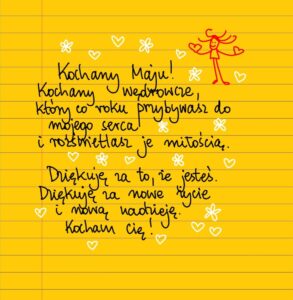 Kochany Maju!
Kochany wędrowcze,
który co roku przybywasz do
mojego serca
i rozświetlasz je miłością.
Dziękuję za to, że jesteś.
Dziękuję za nowe życie
i nową nadzieję.
Kocham cię!